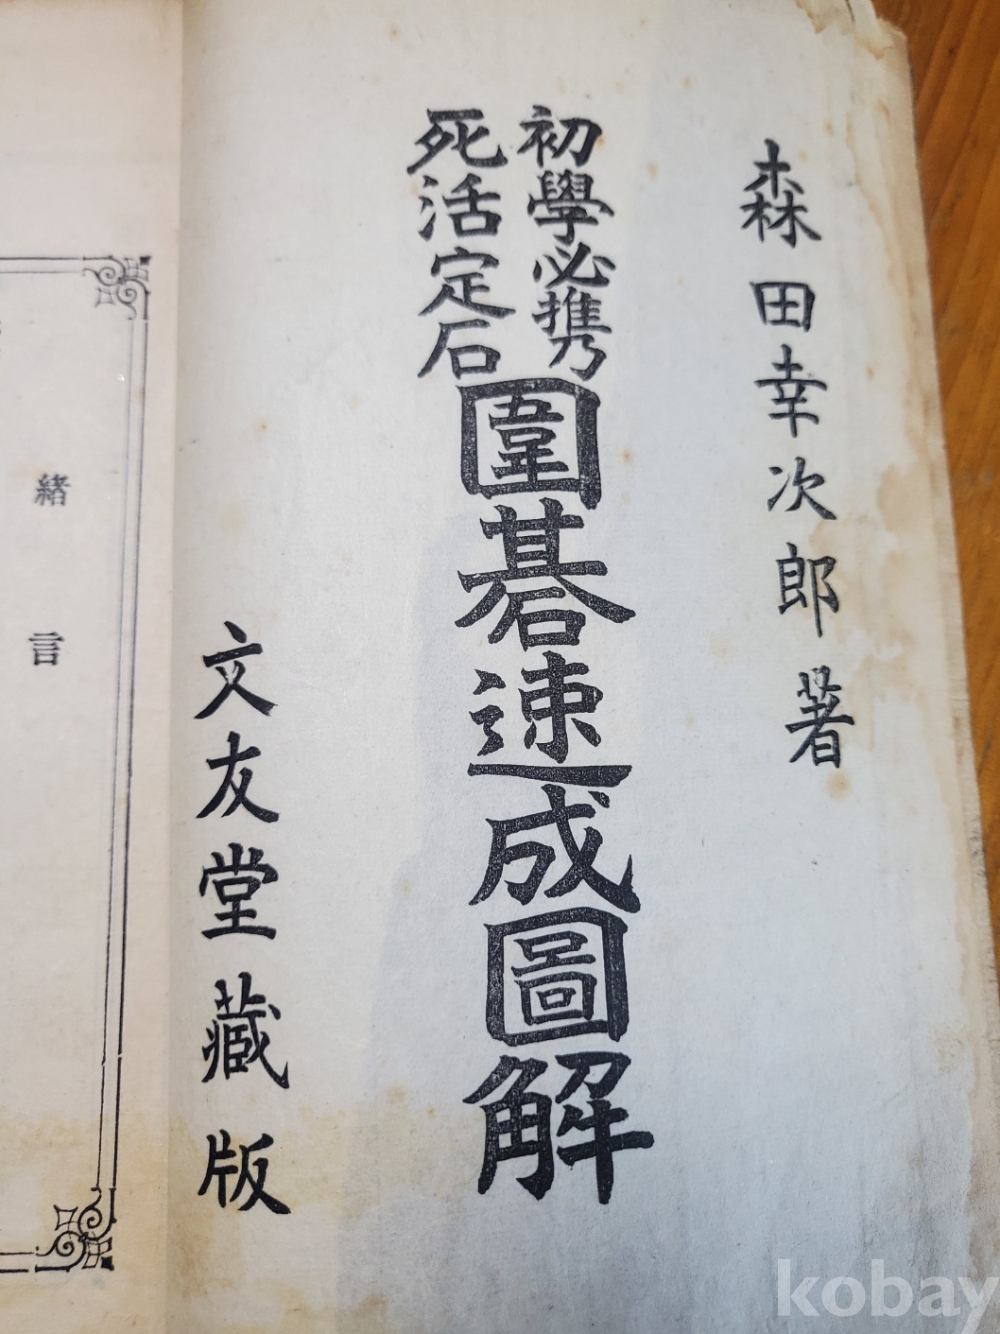 森田幸次郎著
初學必携
死活定石
圍碁速成圖解
文友堂藏版
緒言
kobay